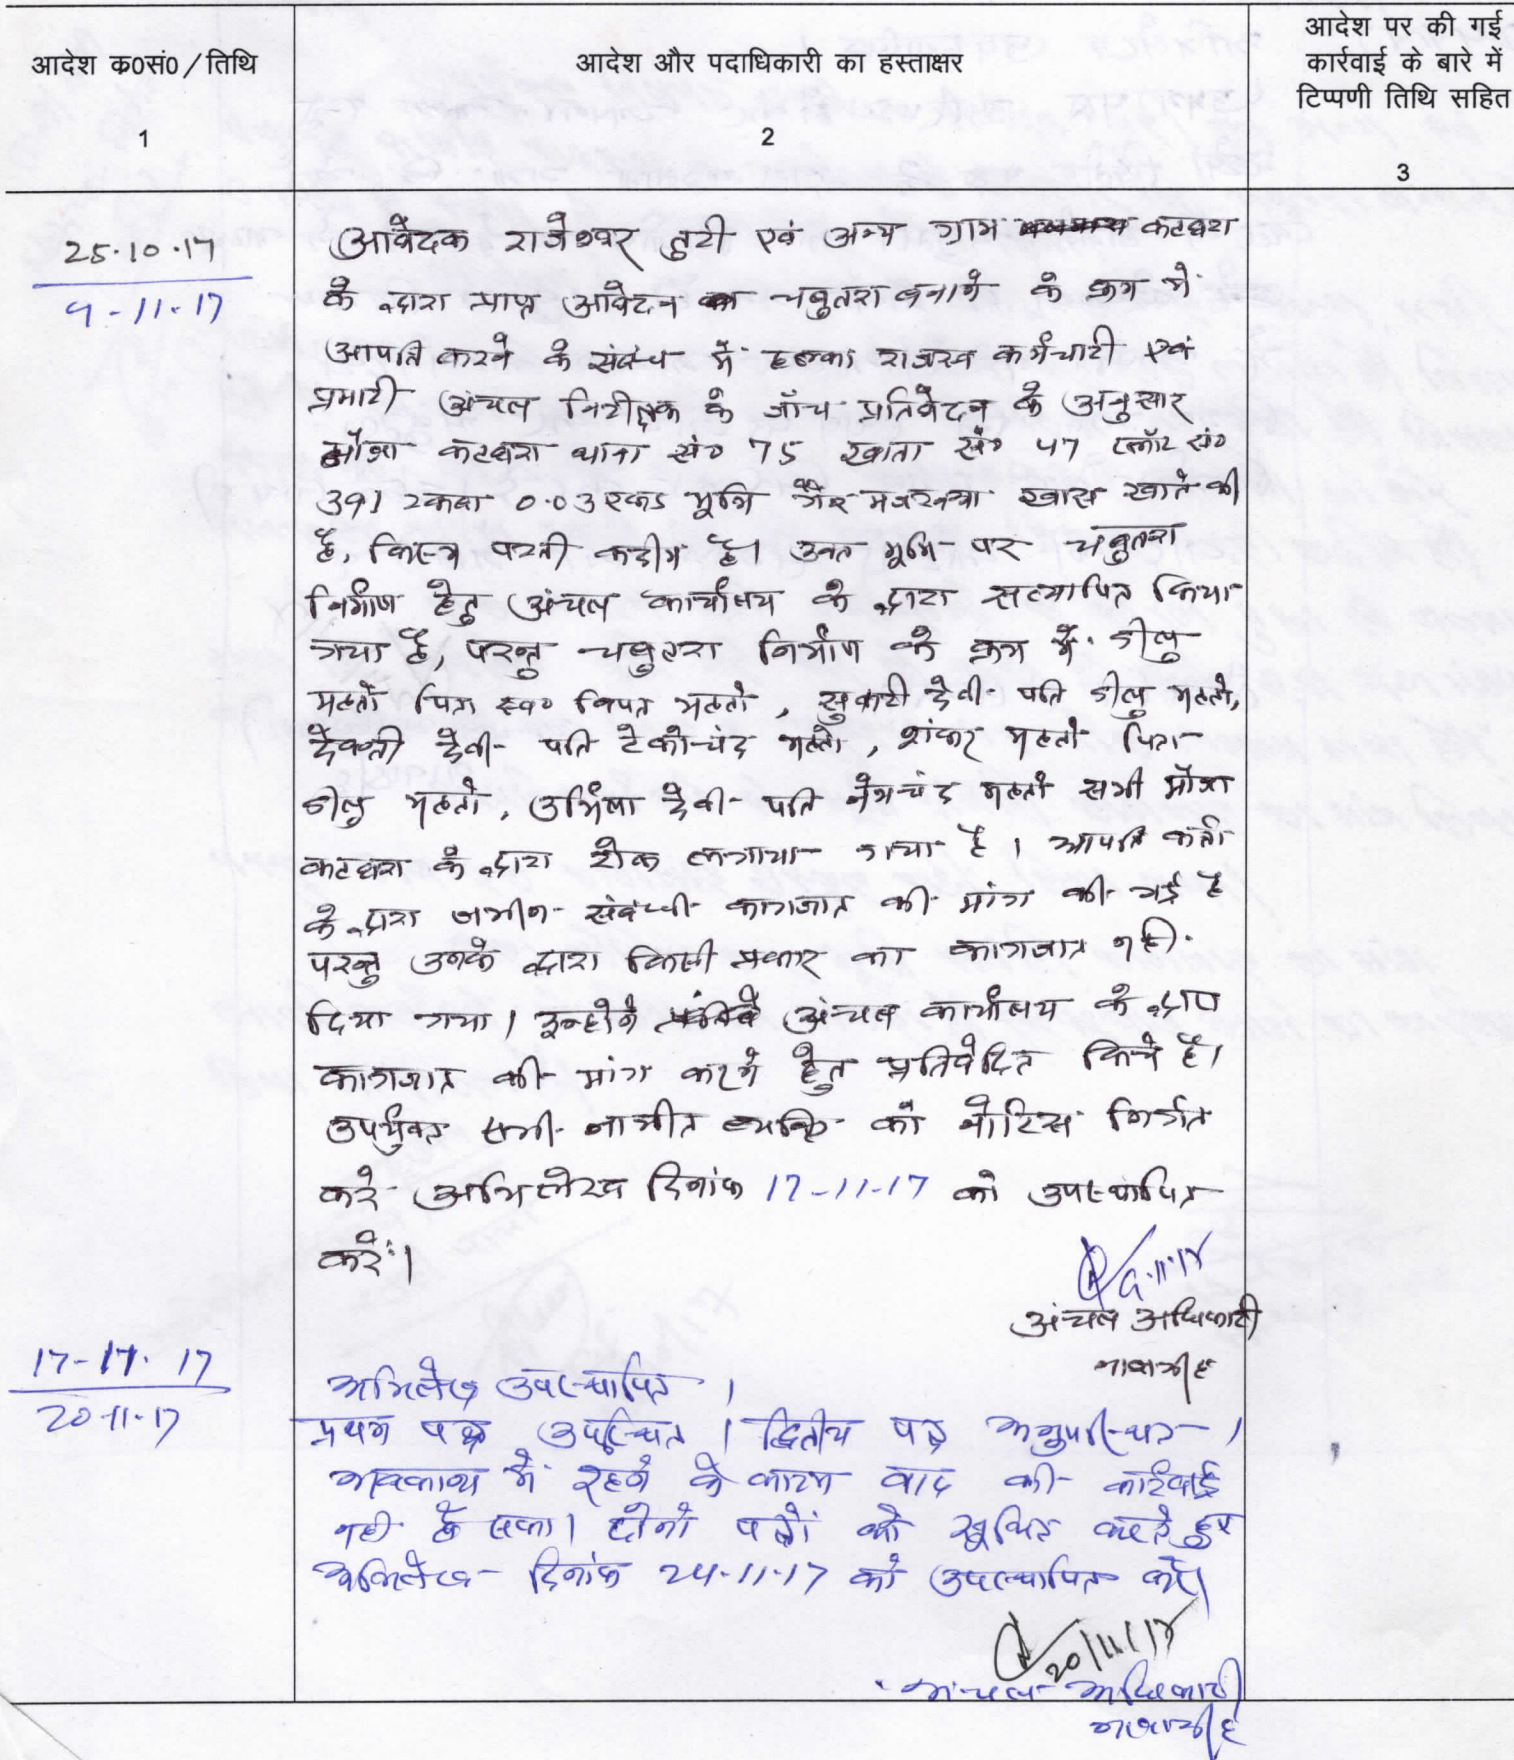 आदेश क०सं० / तिथि
आदेश और पदाधिकारी का हस्ताक्षर
आदेश पर की गई
कार्रवाई के बारे में
टिप्पणी तिथि सहित
1
2
3
25.10.17
9-11-17
आवेदक राजेश्वर टुटी एवं अन्य ग्राम
के द्वारा प्राप्त आवेदन चबुतरा बनाने के क्रम में
आपति करने के संबंध में हल्का राजस्व कर्मचारी एवं
प्रभारी अंचल निरीक्षक के जाँच प्रतिवेदन के अनुसार
मौजा थाना सं० 75 खाता सं० 47 प्लॉट सं०
391 रकबा 0.03 एकड भूमि गैर मजरूआ खास खाते की
है, किस्म परती कदीम है। उक्त भूमि पर चबुतरा
निर्माण हेतु अंचल कार्यालय के द्वारा सत्यापित किया
गया है, परन्तु चबुतरा निर्माण के क्रम में डीलु
महतो पिता स्व० विपत महतो, सुकरी देवी पति डीलु महतो,
देवन्ती देवी पति टेकोचंद महतो, शंकर महतो पिता
डीलु महतो, उर्मिला देवी पति नेमचंद महतो सभी मौजा
के द्वारा रोक लगाया गया है। आपति कर्ता
के द्वारा जमीन संबंधी कागजात की मांग की गई है
परन्तु उनके द्वारा किसी प्रकार का कागजात नही
दिया गया। इन्होने अंचल कार्यालय के द्वारा
कागजात की मांग करने हेतु प्रतिवेदित किये है।
उपर्युक्त सभी नामीत व्यक्ति को नोटिस निर्गत
करे अभिलेख दिनांक 17-11-17 को उपस्थापित
करें।
9.11.17
अंचल अधिकारी
17-11-17
20-11-17
अभिलेख उपस्थापित।
प्रथम पक्ष उपस्थित। द्वितीय पक्ष अनुपस्थित।
अवकाश में रहने के कारण वाद की कार्रवाई
नही हो सका। दोनो पक्षों को सूचित करते हुए
अभिलेख दिनांक 24-11-17 को उपस्थापित करें।
20/11/17
अंचल अधिकारी